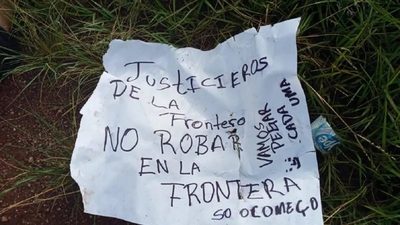 JUSTICIEROS
DE LA
Fronteso
NO ROBAR
EN LA
FRONTERA
SO OCOMEÇO
VAMOS
PEGAR
CADA UMA